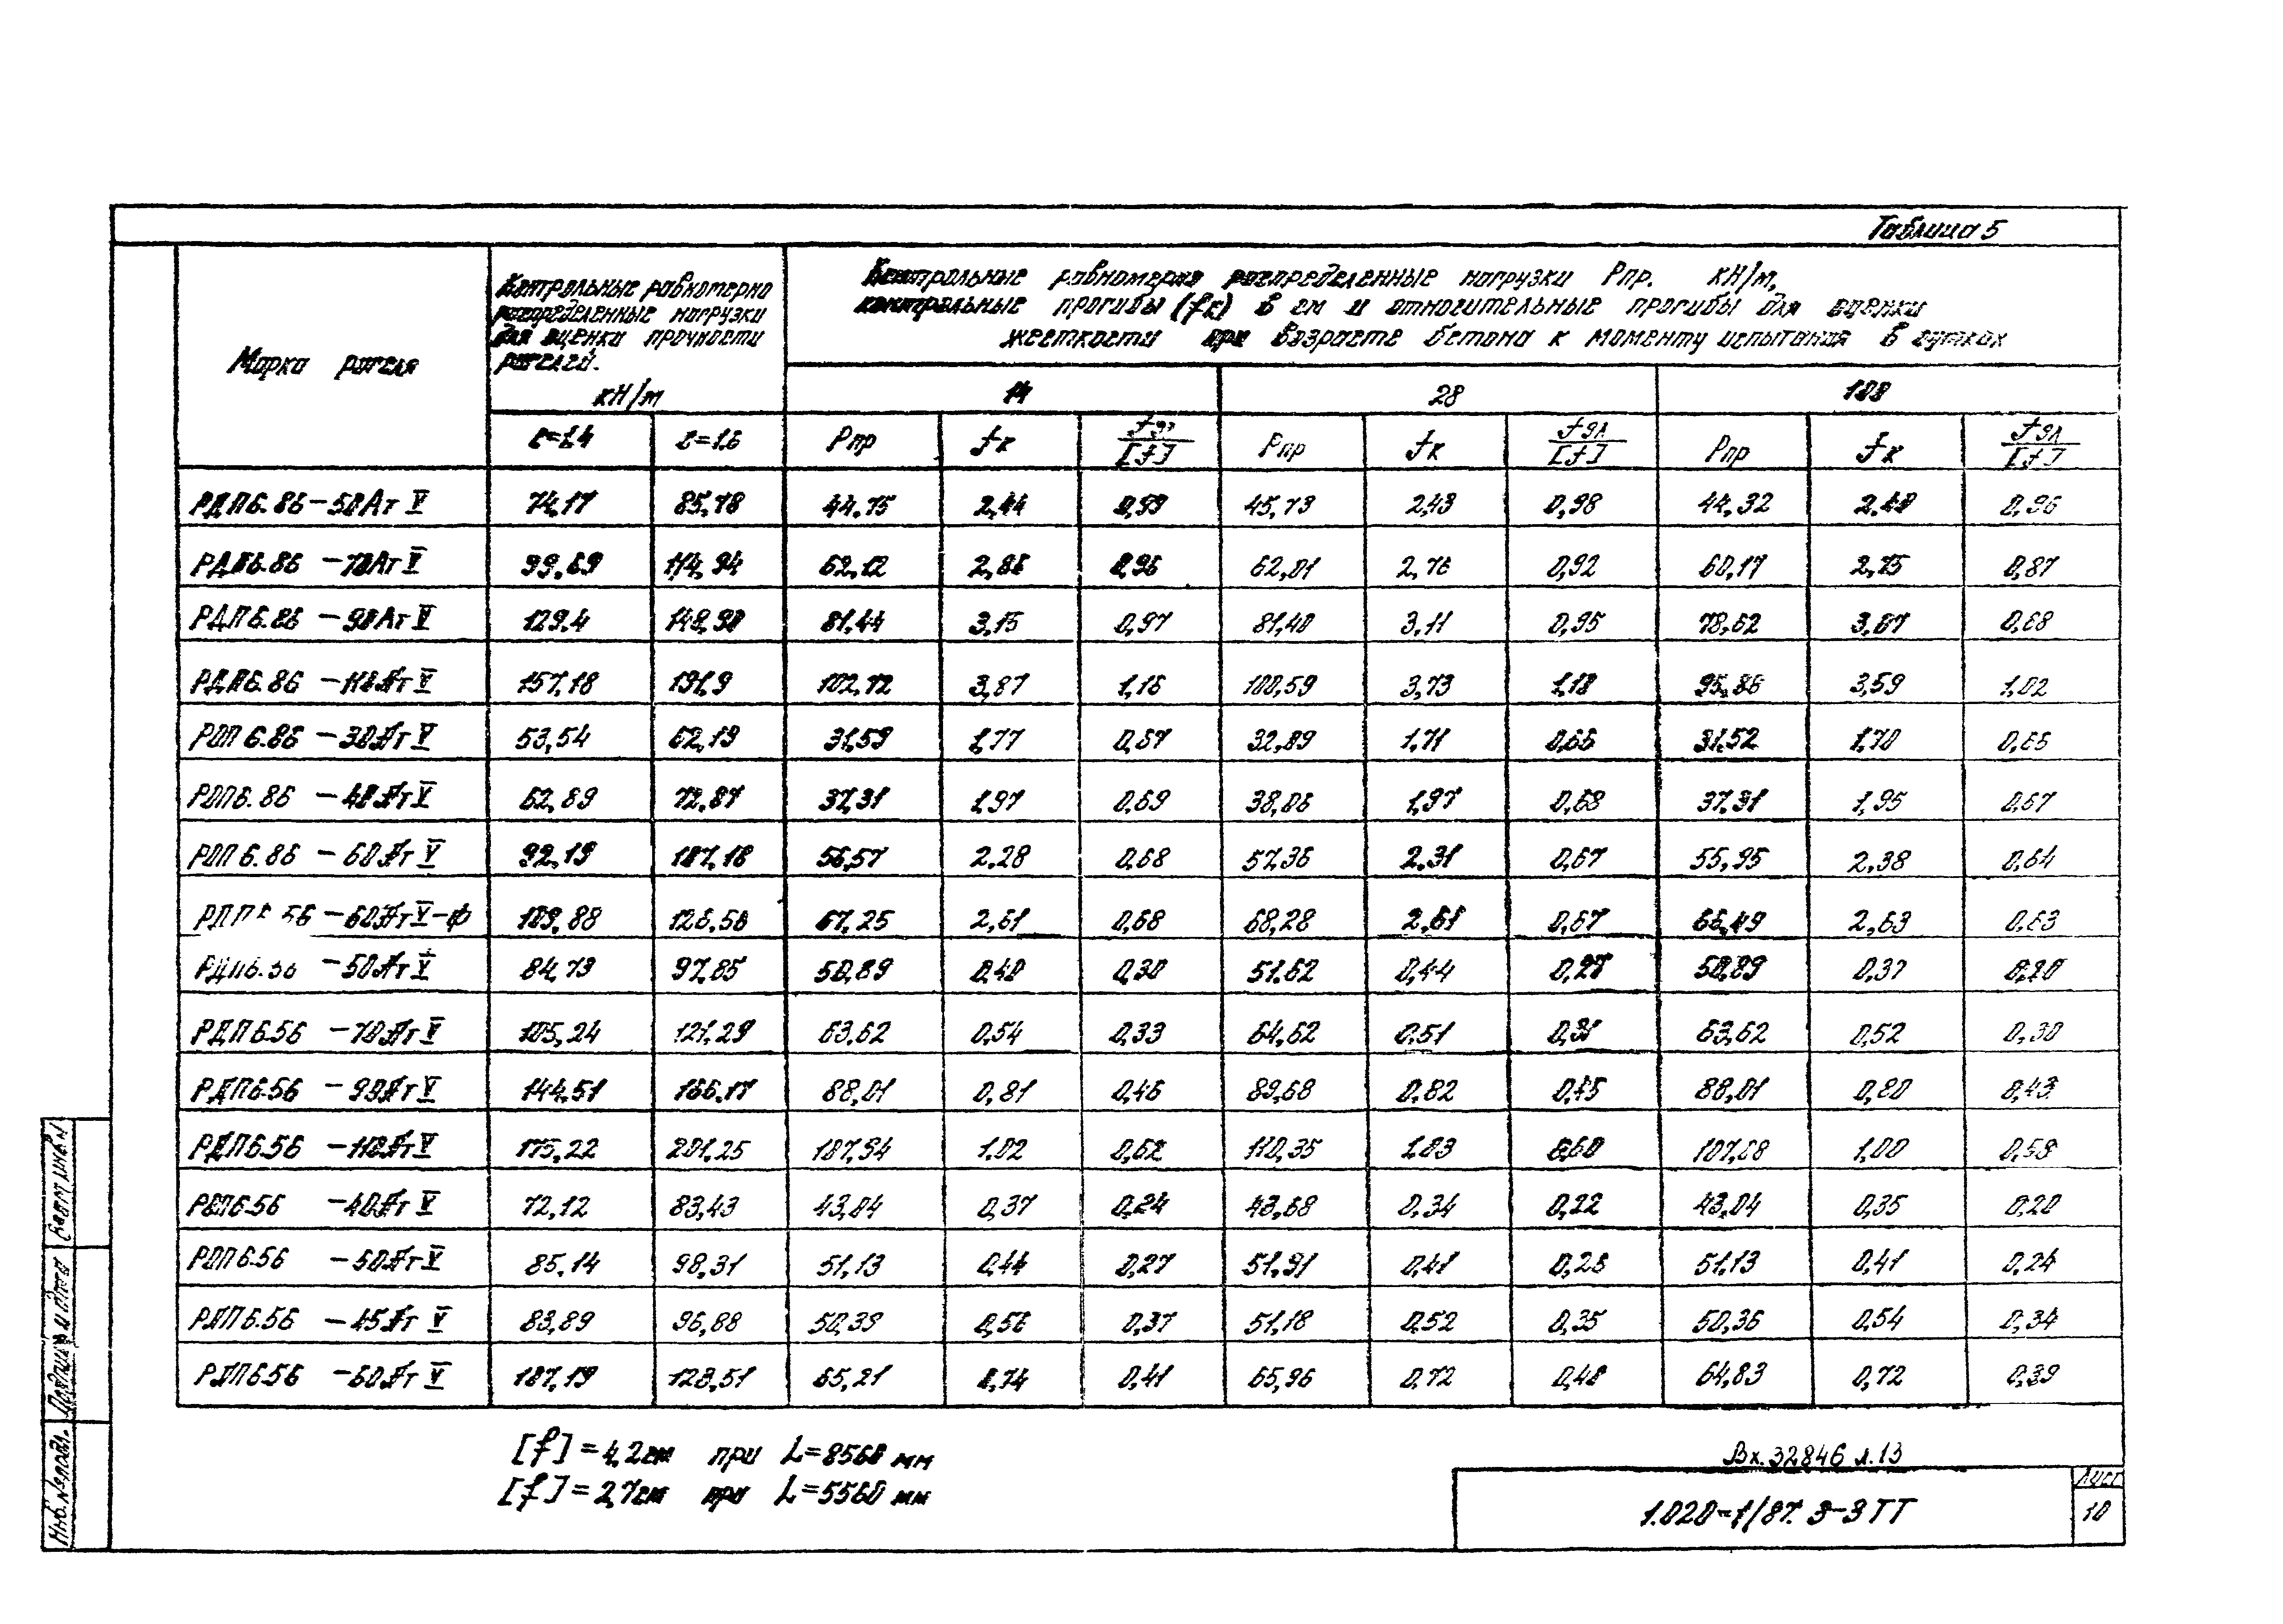 Таблица 5
Марка ригеля
Контрольные равномерно
распределенные нагрузки
для оценки прочности
ригелей.
кН/м
Контрольные равномерно распределенные нагрузки Рпр. кН/м,
контрольные прогибы (fк) в см и относительные прогибы для оценки
жесткости при возрасте бетона к моменту испытания в сутках
14 28 100
c=1.4 c=1.6 Рпр fк fдл/[f] Рпр fк fдл/[f] Рпр fк fдл/[f]
РДП6.86-50АтV 74,17 85,78 44.75 2,44 0,99 45,73 2,43 0,98 44,32 2.40 0,96
РДП6.86 -70АтV 99,69 114,94 62,12 2,86 0,96 62,01 2,76 0,92 60,17 2,75 0,87
РДП6.86 -90АтV 129,4 148,90 81,44 3,15 0,97 81,40 3,11 0,95 78,62 3,07 0,68
РДП6.86 -110АтV 157,18 191,9 102,72 3,87 1,16 100,59 3,73 1,18 95,86 3,59 1,02
РОП6.86 -30АтV 53,54 62,19 31,59 1,77 0,67 32,89 1,71 0,66 31,52 1,70 0,65
РОП6.86 -40АтV 62,89 72,87 37,31 1,97 0,69 38,06 1,97 0,68 37,31 1,95 0,67
РОП6.86 -60АтV 92,19 107,18 56,57 2,28 0,68 57,36 2,31 0,67 55,95 2,38 0,64
-60АтV-ф 109,88 126,56 67,25 2,61 0,68 68,28 2,61 0,67 66,49 2,63 0,63
РДП6.56 -50АтV 84,79 97,85 50,89 0,40 0,30 51,62 0,44 0,27 50,89 0,37 0,20
РДП6.56 -70АтV 105,24 121,29 63,62 0,54 0,33 64,62 0,51 0,31 63,62 0,52 0,30
РДП6.56 -90АтV 144,51 166,17 88,01 0,81 0,46 89,68 0,82 0,45 88,01 0,80 0,43
РДП6.56 -110АтV 175,22 201,25 107,94 1.02 0,62 110,35 1.03 0,60 107,68 1,00 0,58
РОП6.56 -40АтV 72,12 83,43 43,04 0,37 0,24 43,68 0,34 0,22 43,04 0,35 0,20
РОП6.56 -50АтV 85,14 98,31 51,13 0,44 0,27 51,91 0,41 0,26 51,13 0,41 0,24
РЛП6.56 -45АтV 83,89 96,88 50,39 0,56 0,37 51,18 0,52 0,35 50,36 0,54 0,34
РЛП6.56 -60АтV 107,19 123,51 65,21 0,74 0,41 65,96 0,72 0,40 64,83 0,72 0,39
[f]=4,2см при L=8560 мм
[f]=2,7см при L=5560 мм
Вх.32846 л.13
1.020-1/87. 3-3 ТТ
Лист
10
Взам инв.№
Подпись и дата
Инв.№подл.